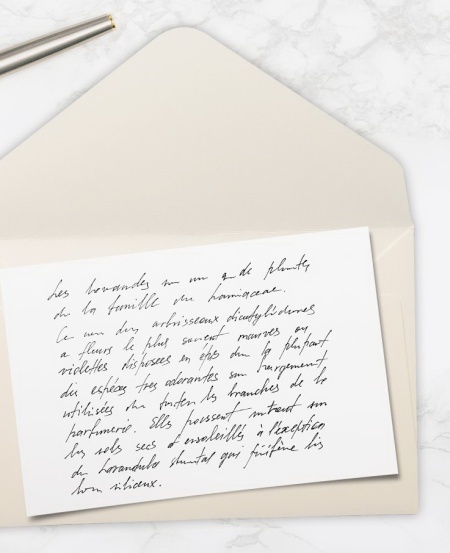 Les lavandes
de la famille des Lamiaceae.
Ce sont des arbrisseaux dicotylédones
a fleurs le plus souvent mauves ou
violettes disposées en épis dont la plupart
des espèces très odorantes sont largement
utilisées dans toutes les branches de la
parfumerie. Elles poussent surtout sur
les sols secs et ensoleillés à l'exception
du Lavandula qui préfère les
siliceux.